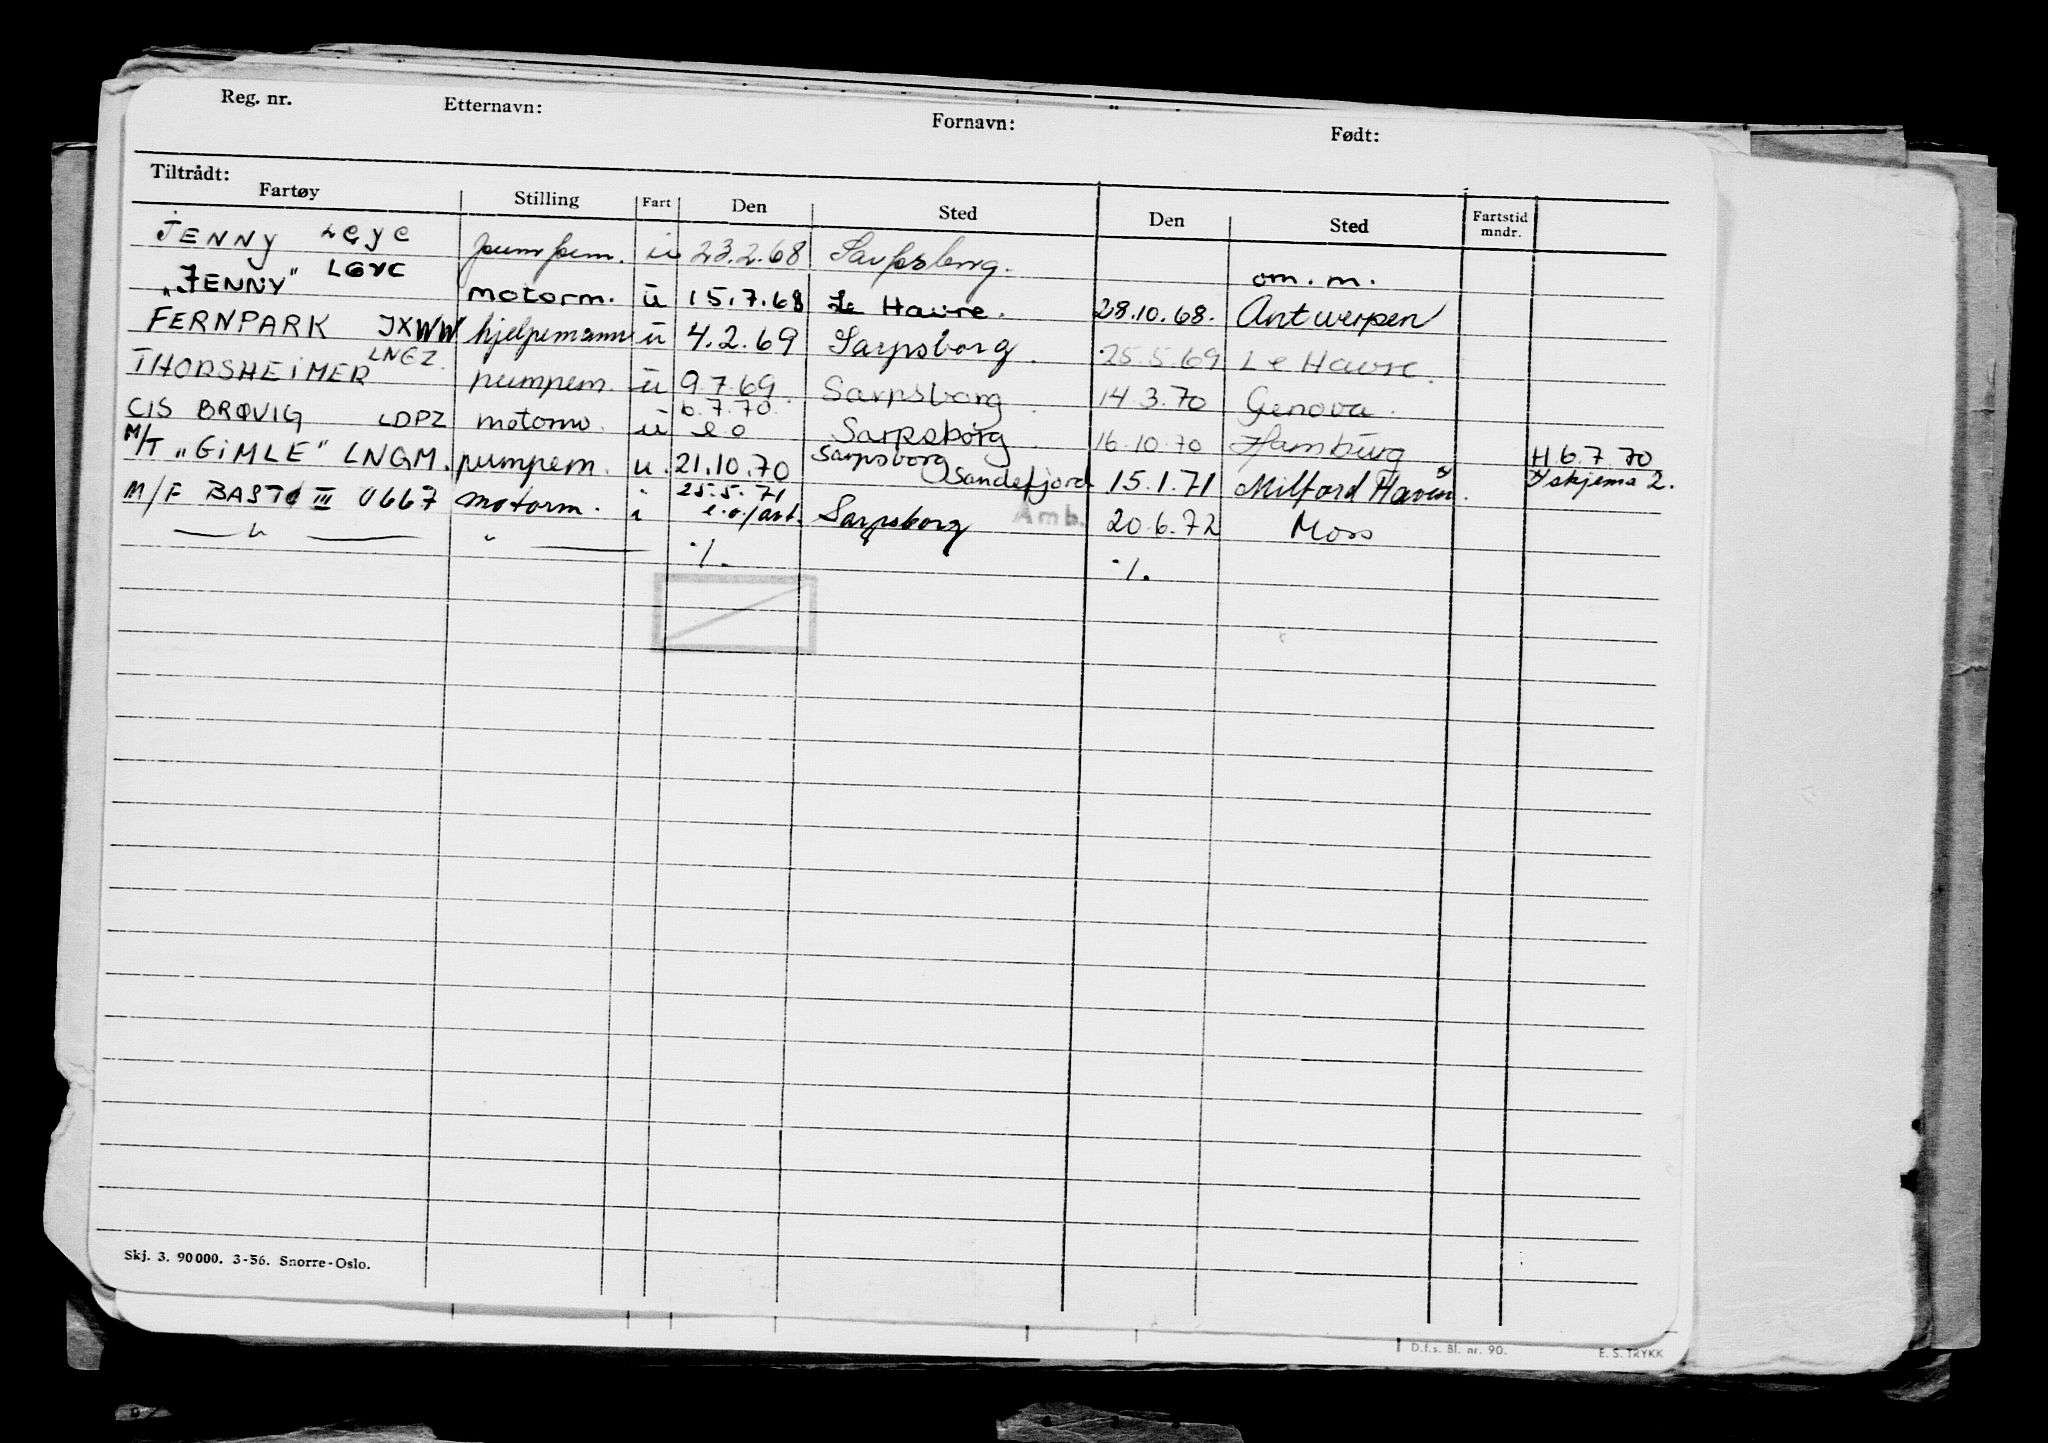 Reg. nr. Etternavn: Fornavn: Født:
Tiltrådt:
Fartøy Stilling Fart Den Sted Den Sted Fartstid mndr.
JENNY LGYC pumpem. u 23.2.68 Sarpsborg. om. m.
"JENNY" LGYC motorm. u 15.7.68 Le Havre. 28.10.68. Antwerpen
FERNPARK JXWW hjelpemann u 4.2.69 Sarpsborg. 25.5.69 Le Havre.
THORSHEIMER LNEZ. pumpem. u 9.7.69. Sarpsborg. 14.3.70 Genova.
CIS BRØVIG LDPZ motorm. u 6.7.70. e.o Sarpsborg. 16.10.70 Hamburg H 6.7.70
M/T "GIMLE" LNGM. pumpem. u. 21.10.70 Sarpsborg Sandefjord 15.1.71 Milford Haven. skjema 2.
M/F BASTØ III 0667 motorm. i 25.5.71 e.o./avt. Sarpsborg Amb. 20.6.72 Moss
— " — " — ./. ./.
Skj. 3. 90000. 3-56. Snorre-Oslo.
D.f.s. Bl. nr. 90. E. S. TRYKK